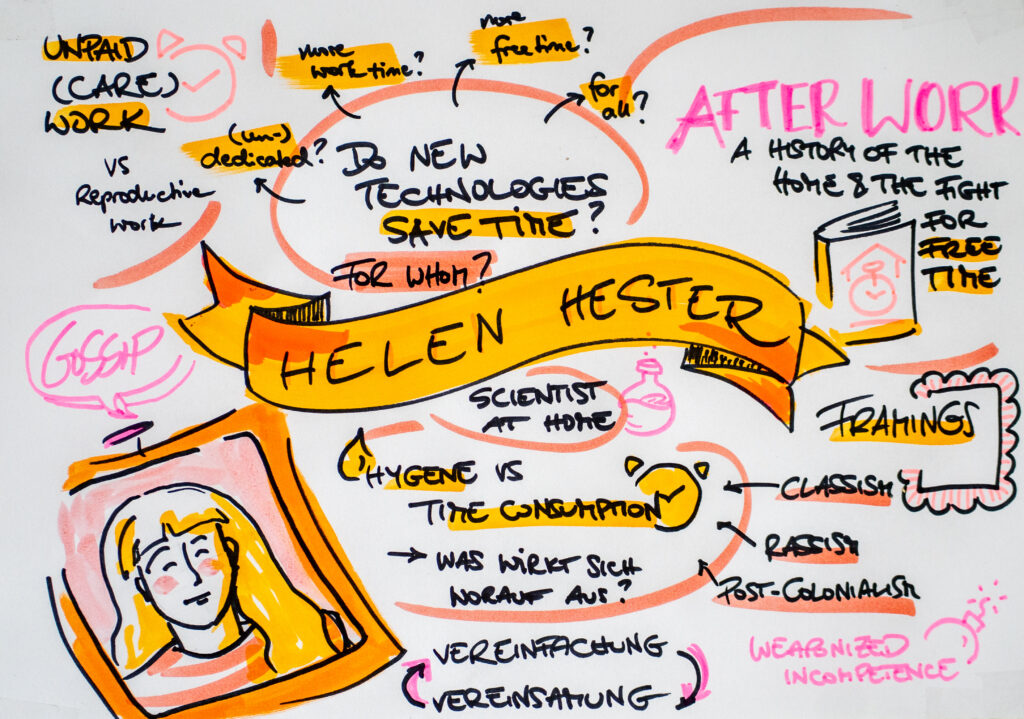 UNPAID
(CARE)
WORK
VS
Reproductive
work
more
work time?
more
free time?
for
all?
(un-)
dedicated?
DO NEW
TECHNOLOGIES
SAVE TIME?
FOR WHOM?
AFTER WORK
A HISTORY OF THE
HOME & THE FIGHT
FOR
FREE
TIME
HELEN HESTER
GOSSIP
SCIENTIST
AT HOME
HYGENE VS
TIME CONSUMPTION
→ WAS WIRKT SICH
WORAUF AUS?
VEREINFACHUNG
VEREINSAMUNG
FRAMINGS
CLASSISM
RASSISM
POST-COLONIALISM
WEAPONIZED
INCOMPETENCE